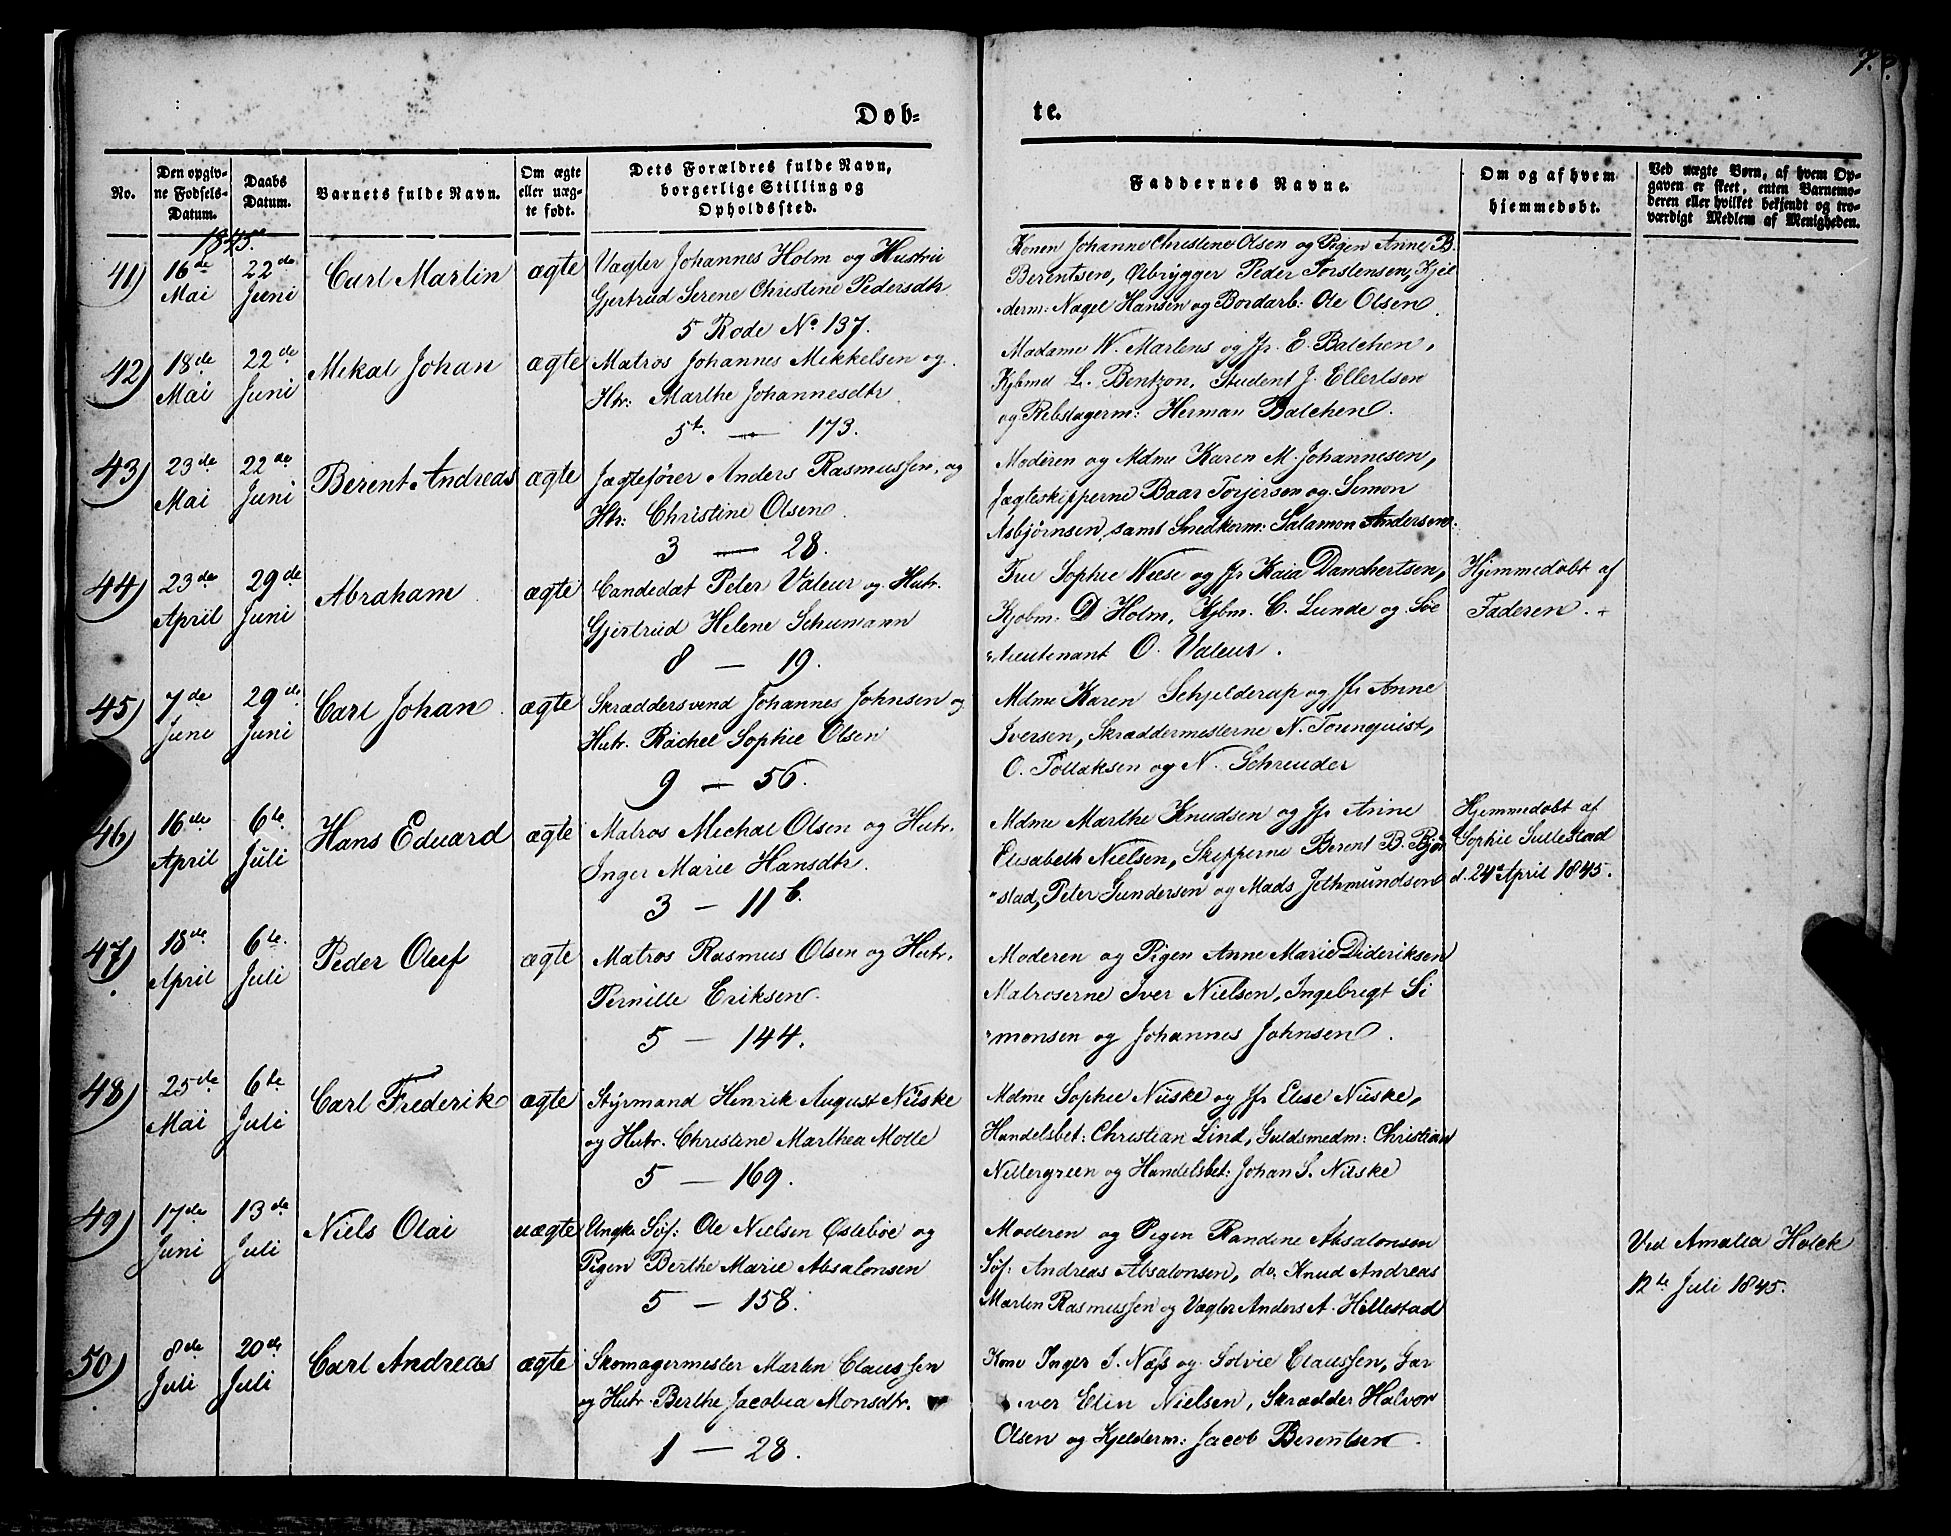 Døb-
te.
No.
Den opgiv-
ne Fødsels-
Datum.
Daabs
Datum.
Barnets fulde Navn.
Om ægte
eller uæg-
te født.
Dets Forældres fulde Navn,
borgerlige Stilling og
Opholdssted.
Faddernes Navne.
Om og af hvem
hjemmedøbt.
Ved uægte Børn, af hvem Op-
gaven er skeet, enten Barnemo-
deren eller hvilket bekjendt og tro-
værdigt Medlem af Menigheden.
1845.
41)
16de
Mai
22de
Juni
Carl Martin
ægte
Vagter Johannes Holm og Hustru
Gjertrud Serene Christine Pedersdtr
5 Rode No 137.
Konen Johanne Christine Olsen og Pigen Anne B.
Berentsen, Ølbrygger Peder Torstensen, Kjel
derm: Nagel Hansen og Bordarb: Ole Olsen.
42)
18de
Mai
22de
Juni
Mikal Johan
ægte
Matros Johannes Mikkelsen og
Htr: Marthe Johannesdtr
5t. — 173.
Madame W. Martens og Jfr. E. Balchen,
Kjbmd L. Bentzon, Student J. Ellertsen
og Rebslagerm: Herman Balchen.
43)
23de
Mai
22de
Juni
Berent Andreas
ægte
Jægtefører Anders Rasmussen, og
Htr: Christine Olsen
3 — 28.
Moderen og Mdme Karen M. Johannesen,
Jægteskipperne Baar Torjersen og Simon
Asbjørnsen, samt Snedkerm: Salamon Andersen.
44)
23de
April
29de
Juni
Abraham
ægte
Candedat Peter Valeur og Hutr.
Gjertrud Helene Schumann
8 — 19.
Frue Sophie Wiese og Jfr Kaia Danchertsen,
Kjøbm. D Holm, Kjbm. C. Lunde og Søe
lieutenant O. Valeur.
Hjemmedøbt af
Faderen.
45)
7de
Juni
29de
Juni
Carl Johan
ægte
Skræddersvend Johannes Johnsen og
Hutr. Rachel Sophie Olsen
9 — 56.
Mdme Karen Schjelderup og Jfr Anne
Iversen, Skræddermesterne N. Tornquist,
O. Tollaksen og N. Schreuder
46)
16de
April
6te
Juli
Hans Eduard
ægte
Matros Michal Olsen og Hutr.
Inger Marie Hansdtr.
3 — 11b.
Mdme Marthe Knudsen og Jfr Anne
Elisabeth Nielsen, Skipperne Berent B. Bjør
stad, Peter Gundersen og Mads Jethmundsen
Hjemmedøbt af
Sophie Sullestad
d. 24de April 1845.
47)
18de
April
6te
Juli
Peder Oluf
ægte
Matros Rasmus Olsen og Hutr.
Pernille Eriksen.
5 — 144.
Moderen og Pigen Anne Marie Dideriksen
Matroserne Iver Nielsen, Ingebrigt Si
monsen og Johannes Johnsen.
48)
25de
Mai
6te
Juli
Carl Frederik
ægte
Styrmand Henrik August Nüske
og Hutr. Christine Marthea Molle
5 — 169.
Mdme Sophie Nüske og Jfr Elise Nüske,
Handelsbet: Christian Lind, Guldsmedm: Christian
Nettergreen og Handelsbet: Johan S. Nüske
49)
17de
Juni
13de
Juli
Niels Olai
uægte
Ungk. Søf: Ole Nielsen Østebøe og
Pigen Berthe Marie Absalonsen
5 — 158.
Moderen og Pigen Randine Absalonsen
Søf: Andreas Absalonsen, do Knud Andreas
Martin Rasmussen og Vagter Anders A. Hillestad
Ved Amalia Holck
12te Juli 1845.
50)
8de
Juli
20de
Juli
Carl Andreas
ægte
Skomagermester Martin Claussen
og Hutr. Berthe Jacobia Monsdtr.
1 — 28.
Kone Inger J. Næss og Solvie Claussen, Gar
ver Elin Nielsen, Skrædder Halvor
Olsen og Kjelderm: Jacob Berentsen.